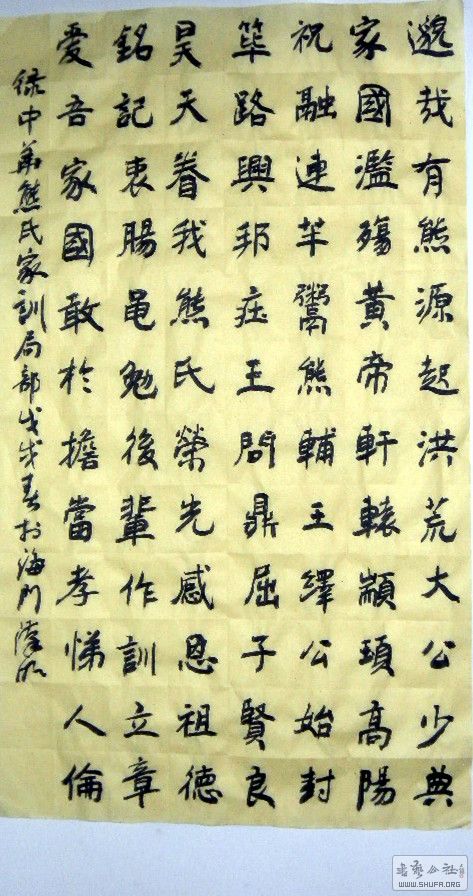 邈哉有熊源起洪荒大公少典
家國濫殤黃帝軒轅顓頊高陽
祝融連芈鬻熊輔王繹公始封
筚路興邦庄王問鼎屈子賢良
昊天眷我熊氏榮先感恩祖德
銘記衷腸黾勉後輩作訓立章
愛吾家國敢於擔當孝悌人倫
録中華熊氏家訓局部戊戌春於海門
書藝公社
WWW.SHUFA.ORG